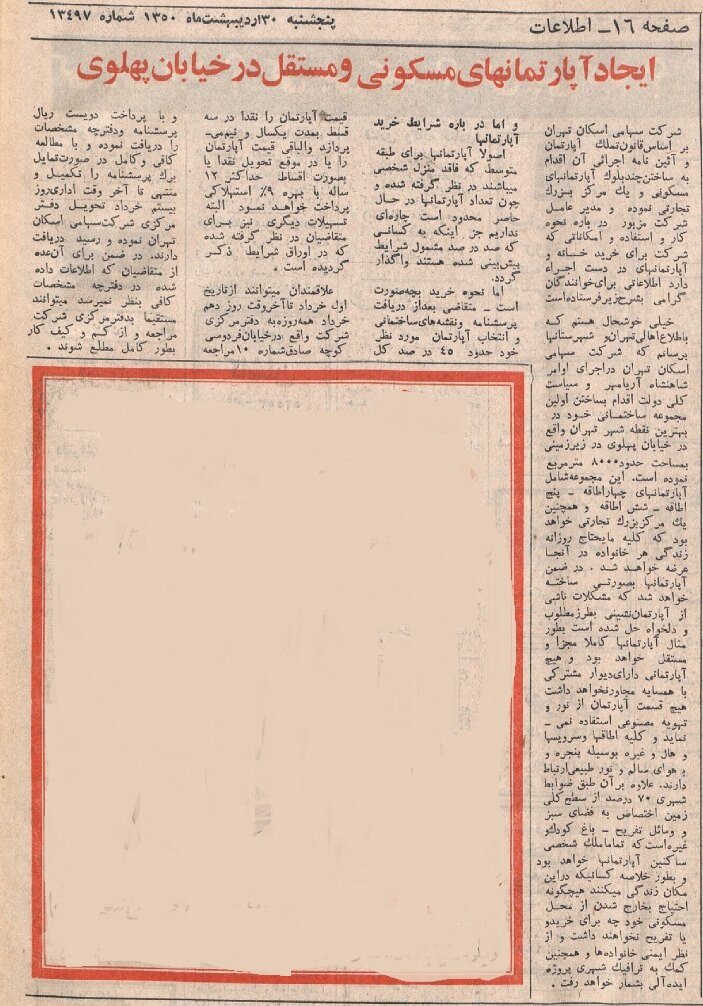 صفحه ۱۶ـ اطلاعات
پنجشنبه ۳۰اردیبهشت‌ماه ۱۳۵۰ شماره ۱۳۴۹۷
ایجادآپارتمانهای‌مسکونی ومستقل‌درخیابان‌پهلوی
شرکت سهامی اسکان تهران
بر اساس‌قانون‌تملك آپارتمان
و آئین نامه اجرائی آن اقدام
به ساختن‌چندبلوك آپارتمانهای
مسکونی و یك مرکز بزرك
تجارتی نموده و مدیر عامل
شرکت مزبور در باره نحوه
کار و استفاده و امکاناتی که
شرکت برای خرید خسانه و
آپارتمانهای در دست اجراء
دارد اطلاعاتی برای‌خوانندگان
گرامی بشرح‌زیرفرستاده‌است
خیلی خوشحال هستم که
باطلاع‌اهالی‌تهران‌و شهرستانها
برسانم که شرکت سهامی
اسکان تهران دراجرای اوامر
شاهنشاه آریامهر و سیاست
کلی دولت اقدام بساختن اولین
مجموعه ساختمانی خود در
بهترین نقطه شهر تهران واقع
در خیابان پهلوی در زیرزمینی
بمساحت حدود۸۰۰۰ مترمربع
نموده است. این مجموعه‌شامل
آپارتمانهای چهاراطاقه ـ پنج
اطاقه ـ شش اطاقه و همچنین
یك مرکزبزرك تجارتی خواهد
بود که کلیه مایحتاج روزانه
زندگی هر خانواده در آنجا
عرضه خواهد شد . در ضمن
آپارتمانها بصورتی ساخته
خواهد شد که مشکلات ناشی
از آپارتمان‌نشینی بطرزمطلوب
و دلخواه حل شده است بطور
مثال آپارتمانها کاملا مجزا و
مستقل خواهد بود و هیچ
آپارتمانی دارای‌دیوار مشترکی
با همسایه مجاورنخواهد داشت
هیچ قسمت آپارتمان از نور و
تهویه مصنوعی استفاده نمی ـ
نماید و کلیه اطاقها وسرویسها
و هال و غیره بوسیله پنجره و
با هوای سالم و نور طبیعی‌ارتباط
دارند. علاوه برآن طبق ضوابط
شهری ۷۰ درصد از سطح‌کلی
زمین اختصاص به فضای سبز
و وسائل تفریح ـ باغ کودك‌و
غیره‌است‌که تماماملك شخصی
ساکنین آپارتمانها خواهد بود
و بطور خلاصه کسانیکه دراین
مکان زندگی میکنند هیچگونه
احتیاج بخارج شدن از محل
مسکونی خود چه برای خریدو
یا تفریح نخواهند داشت و از
نظر ایمنی خانواده‌ها و همچنین
کمك به ترافیك شهری پروژه
ایده‌آلی بشمار خواهد رفت .
و اما در باره شرایط خرید
آپارتمانها
اصولا آپارتمانها برای طبقه
متوسط که فاقد منزل شخصی
میباشند در نظر گرفته شده و
چون تعداد آپارتمانها در حال
حاضر محدود است چاره‌ای
نداریم جز اینکه به کسانی
که صد در صد مشمول شرایط
پیش‌بینی شده هستند واگذار
گردد.
اما نحوه خرید بچه‌صورت
است ـ متقاضی بعداز دریافت
پرسشنامه ونقشه‌های‌ساختمانی
و انتخاب آپارتمان مورد نظر
خود حدود ۴۵ در صد کل
قیمت آپارتمان را نقدا در سه
قسط بمدت یکسال و نیم‌می‌ـ
پردازد والباقی قیمت آپارتمان
را یا در موقع تحویل نقدا یا
بصورت اقساط حداکثر ۱۲
ساله با بهره ۹٪ استهلاکی
پرداخت خواهد نمود البته
تسهیلات دیگری نیز برای
متقاضیان در نظر گرفته شده
که در اوراق شرایط ذکر
گردیده است .
علاقمندان میتوانند ازتاریخ
اول خرداد تاآخروقت روز دهم
خرداد همه‌روزه‌به دفترمرکزی
شرکت واقع درخیابان‌فردوسی
کوچه صادق‌شماره ۱۰مراجعه
و با پرداخت دویست ریال
پرسشنامه ودفترچه مشخصات
را دریافت نموده و با مطالعه
کافی وکامل در صورت‌تمایل
برك پرسشنامه را تکمیل و
منتهی تا آخر وقت اداری‌روز
بیستم خرداد تحویل دفتر
مرکزی شرکت‌سهامی اسکان
تهران نموده و رسید دریافت
دارند. در ضمن برای آن‌عده
از متقاضیان که اطلاعات داده
شده در دفترچه مشخصات
کافی بنظر نمیرسد میتوانند
مستقیما بدفترمرکزی شرکت
مراجعه و از کم و کیف کار
بطور کامل مطلع شوند .